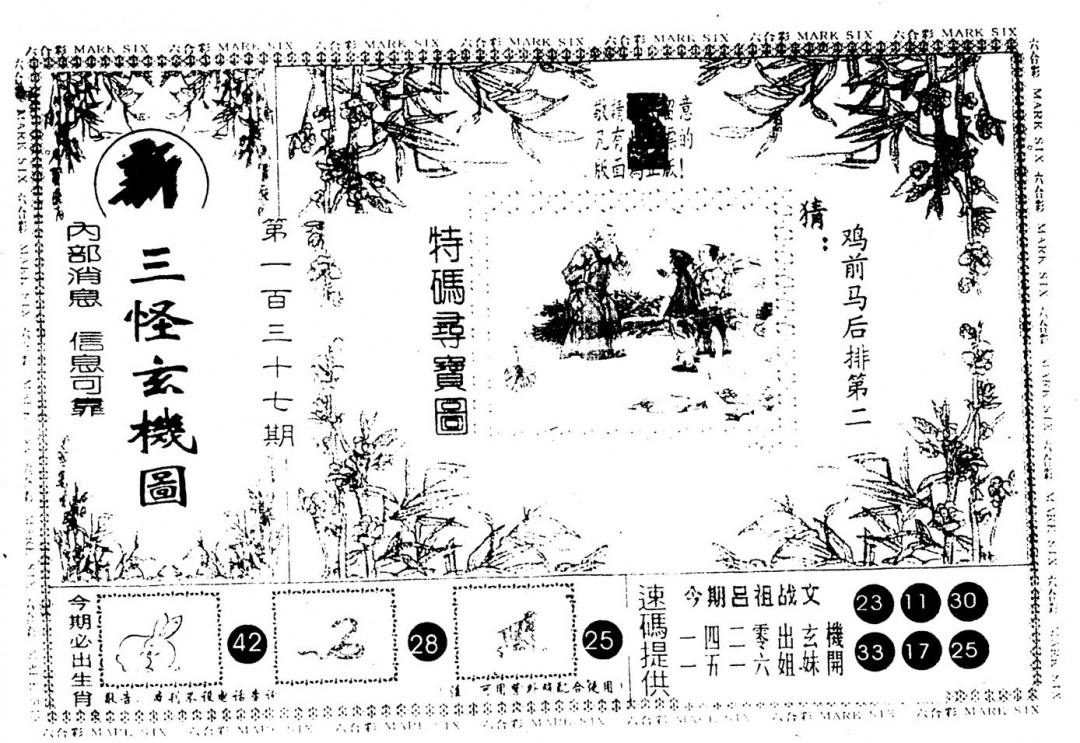 六合彩 MARK SIX 六合彩 MARK SIX 六合彩 MARK SIX 六合彩 MARK SIX 六合彩 MARK SIX 六合彩 MARK SIX 六合彩 MARK SIX
新
三怪玄機圖
內部消息 信息可靠
第一百三十七期
敬請 意
凡有 的
版面為正版!
特碼尋寶圖
猜:
鸡前马后排第二
今期必出生肖
42
28
25
敬告:本刊不设电话告诉
(注 可用紫外线配合使用)
速碼提供
今期吕祖战文
一四二零出玄機
一五一六姐妹開
23 11 30
33 17 25
六合彩 MARK SIX 六合彩 MARK SIX 六合彩 MARK SIX 六合彩 MARK SIX 六合彩 MARK SIX 六合彩 MARK SIX 六合彩 MARK SIX